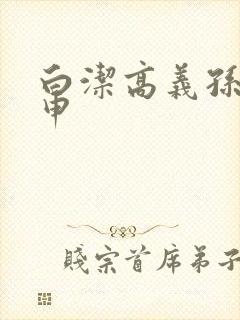 白潔高義孫
申
賤宗首席弟子